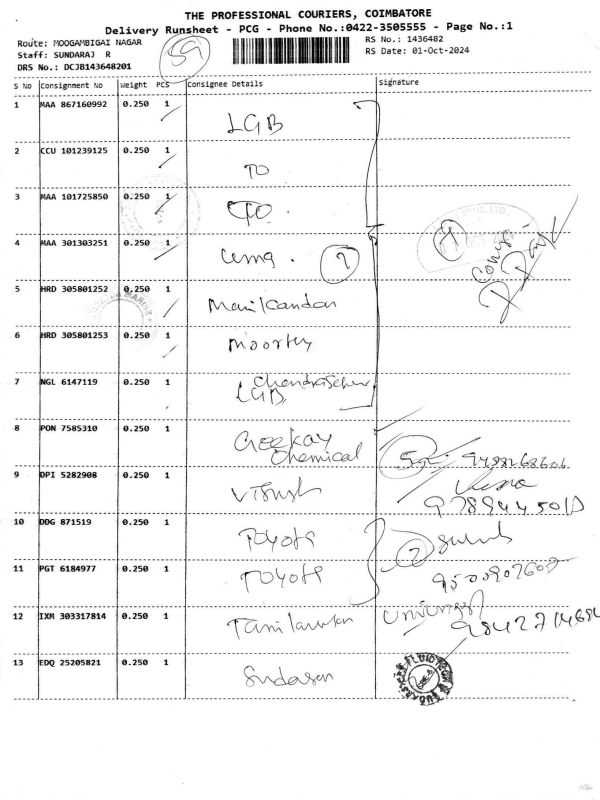 THE PROFESSIONAL COURIERS, COIMBATORE
Delivery Runsheet - PCG - Phone No.:0422-3505555 - Page No.:1
Route: MOOGAMBIGAI NAGAR
RS No.: 1436482
Staff: SUNDARAJ R
RS Date: 01-Oct-2024
DRS No.: DCJB143648201
59
S No Consignment No Weight PCS Consignee Details Signature
1 MAA 867160992 0.250 1 LGB
2 CCU 101239125 0.250 1 TO
3 MAA 101725850 0.250 1 TO
4 MAA 301303251 0.250 1 uma. 7
5 HRD 305801252 0.250 1 Manikandan
6 HRD 305801253 0.250 1 moorthy
7 NGL 6147119 0.250 1 Chandrasekar
LGB
8 PON 7585310 0.250 1 Geekay
Chemical
9 DPI 5282908 0.250 1
10 DDG 871519 0.250 1 Toyota
11 PGT 6184977 0.250 1 Toyota 2
12 IXM 303317814 0.250 1
13 EDQ 25205821 0.250 1 Sudasan